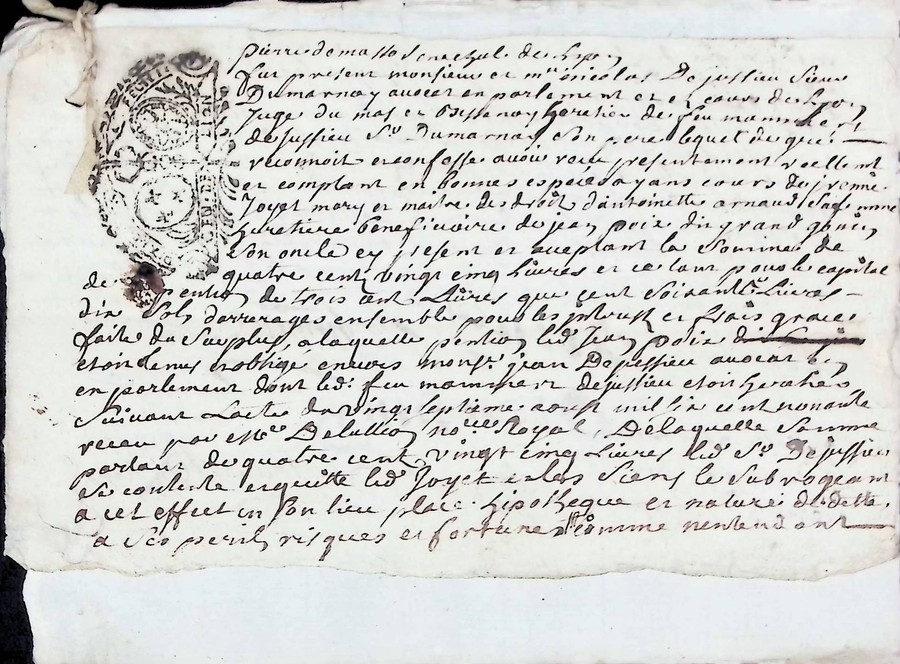 pierre demasso Senechal de Lyon
fut present monsieur et mre nicolas Dejussieu Sieur
Dumarnay avocat en parlement et es cours de Lyon
Juge du mas et heretier de feu mammert
dejussieu Sr. Dumarnay Son pere lequel de gré
reconnoit et confesse avoir receu presentement reellemt
et comptant en bonnes especes ayans cours de
Joyet mary et maitre des droits d'antoinette arnaud Sa femme
heretiere beneficiaire de jean poix dit grand
Son oncle cy present et aceptant la Somme de
quatre cent vingt cinq Livres et ce tant pour le capital
de pention de trois cent Livres que cent Soixante Livres
dix Sols d'arrerages ensemble pour les interest et frais grace
faite du Surplus, a laquelle pention led. Jean poix
etoit tenu et obligé envers monsr. jean Dejussieu avocat
en parlement dont led. feu mammert dejussieu etoit heretier
Suivant Lacte du vingt Septieme aoust mil six cent nonante
receu par Me. Delullio nore Royal, De laquelle Somme
partant de quatre cent vingt cinq Livres led. Sr. Dejussieu
Se contente et quitte led. Joyet et les Siens le Subrogeant
a cet effect en Son lieu place hipotheque et nature de dette
a Ses peril risques et fortune comme nentendant
FEUILLE
GEN. DE LION